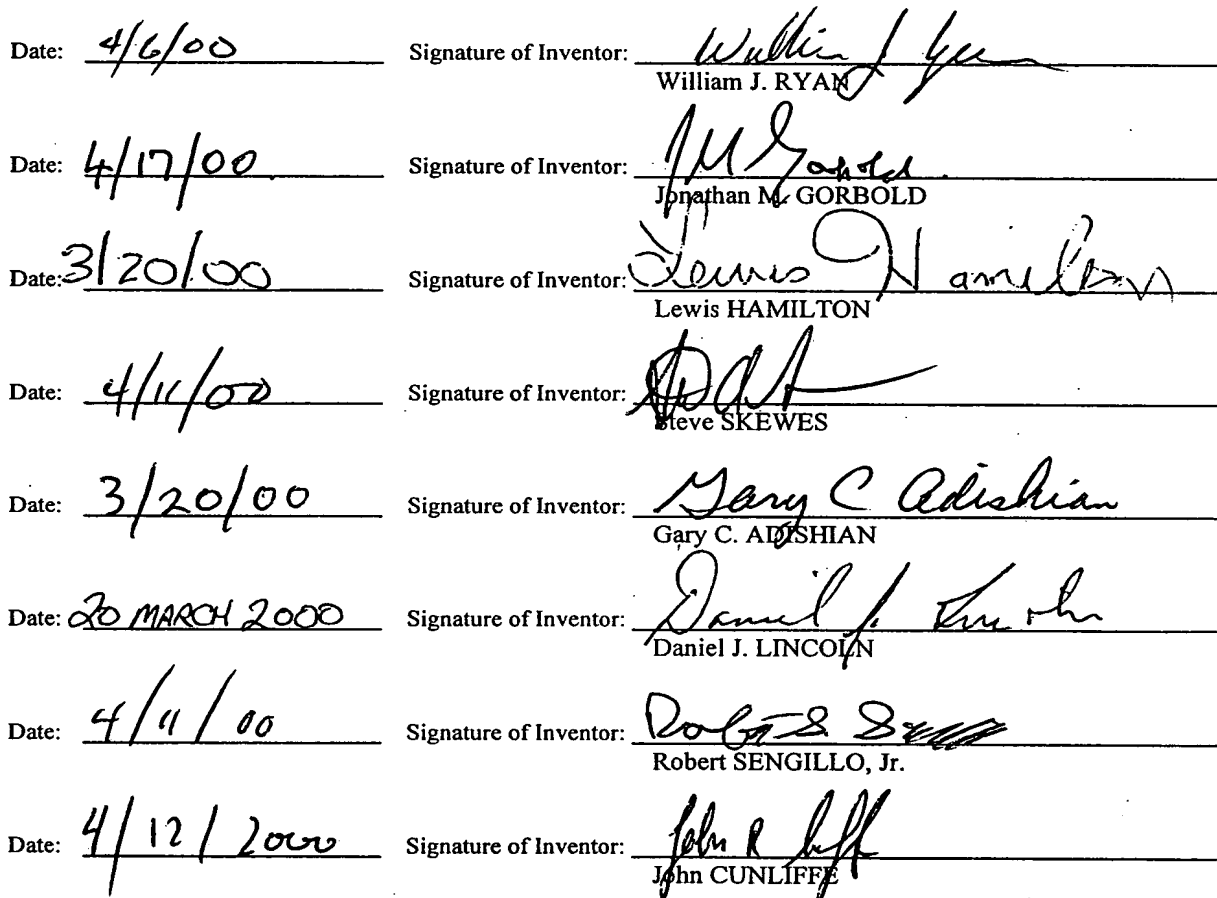 Date: 4/6/00 Signature of Inventor: William J Ryan
William J. RYAN
Date: 4/17/00 Signature of Inventor: JM Gorbold
Jonathan M. GORBOLD
Date: 3/20/00 Signature of Inventor: Lewis Hamilton
Lewis HAMILTON
Date: 4/11/00 Signature of Inventor:
Steve SKEWES
Date: 3/20/00 Signature of Inventor: Gary C Adishian
Gary C. ADISHIAN
Date: 20 MARCH 2000 Signature of Inventor: Daniel J. Lincoln
Daniel J. LINCOLN
Date: 4/11/00 Signature of Inventor:
Robert SENGILLO, Jr.
Date: 4/12/2000 Signature of Inventor: John R
John CUNLIFFE